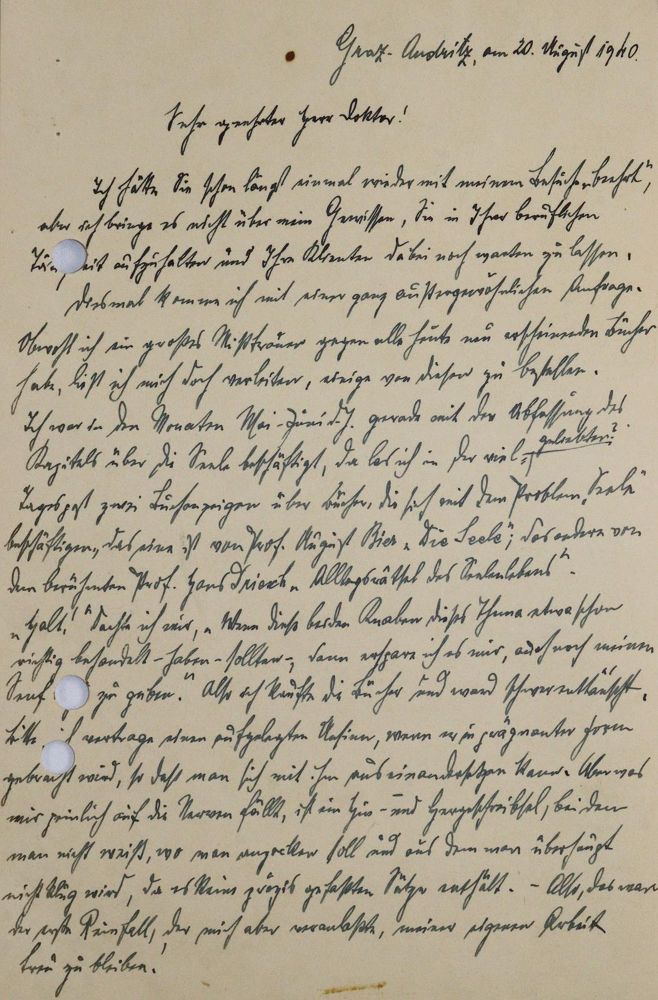 Graz-Andritz, am 20. August 1940.
Sehr geehrter Herr Doktor!
Ich hätte Sie schon längst einmal wieder mit meinem Besuche „beehrt“,
aber ich bringe es nicht über mein Gewissen, Sie in Ihrer beruflichen
Tätigkeit aufzuhalten und Ihre Klienten dabei noch warten zu lassen.
Diesmal komme ich mit einer ganz außergewöhnlichen Anfrage.
Obwohl ich ein großes Mißtrauen gegen alle heute neu erscheinenden Bücher
habe, ließ ich mich doch verleiten, einige von diesen zu bestellen.
Ich war in den Monaten Mai-Juni d. J. gerade mit der Abfassung des
Kapitels über die Seele beschäftigt, da las ich in der viel geliebten?
Tagespost zwei Buchanzeigen über Bücher, die sich mit dem Problem „Seele“
beschäftigen, das eine ist von Prof. August Bier „Die Seele“; das andere von
dem berühmten Prof. Hans Driesch „Alltagsrätsel des Seelenlebens“.
„Halt!“ dachte ich mir, „Wenn diese beiden Knaben dieses Thema etwa schon
richtig behandelt - haben - sollten -, dann erspare ich es mir, auch noch meinen
Senf zu geben.“ Also ich kaufte die Bücher und ward schwer enttäuscht.
Bitte, ich vertrage einen aufgelegten Unsinn, wenn er in prägnanter Form
gebracht wird, so daß man sich mit ihm auseinandersetzen kann. Aber was
mir peinlich auf die Nerven fällt, ist ein Hin- und Hergeschreibsel, bei dem
man nicht weiß, wo man anpacken soll und aus dem man überhaupt
nicht klug wird, da es keine präzis gefaßten Sätze enthält. - Also, das war
der erste Reinfall, der mich aber veranlaßte, meiner eigenen Arbeit
treu zu bleiben!